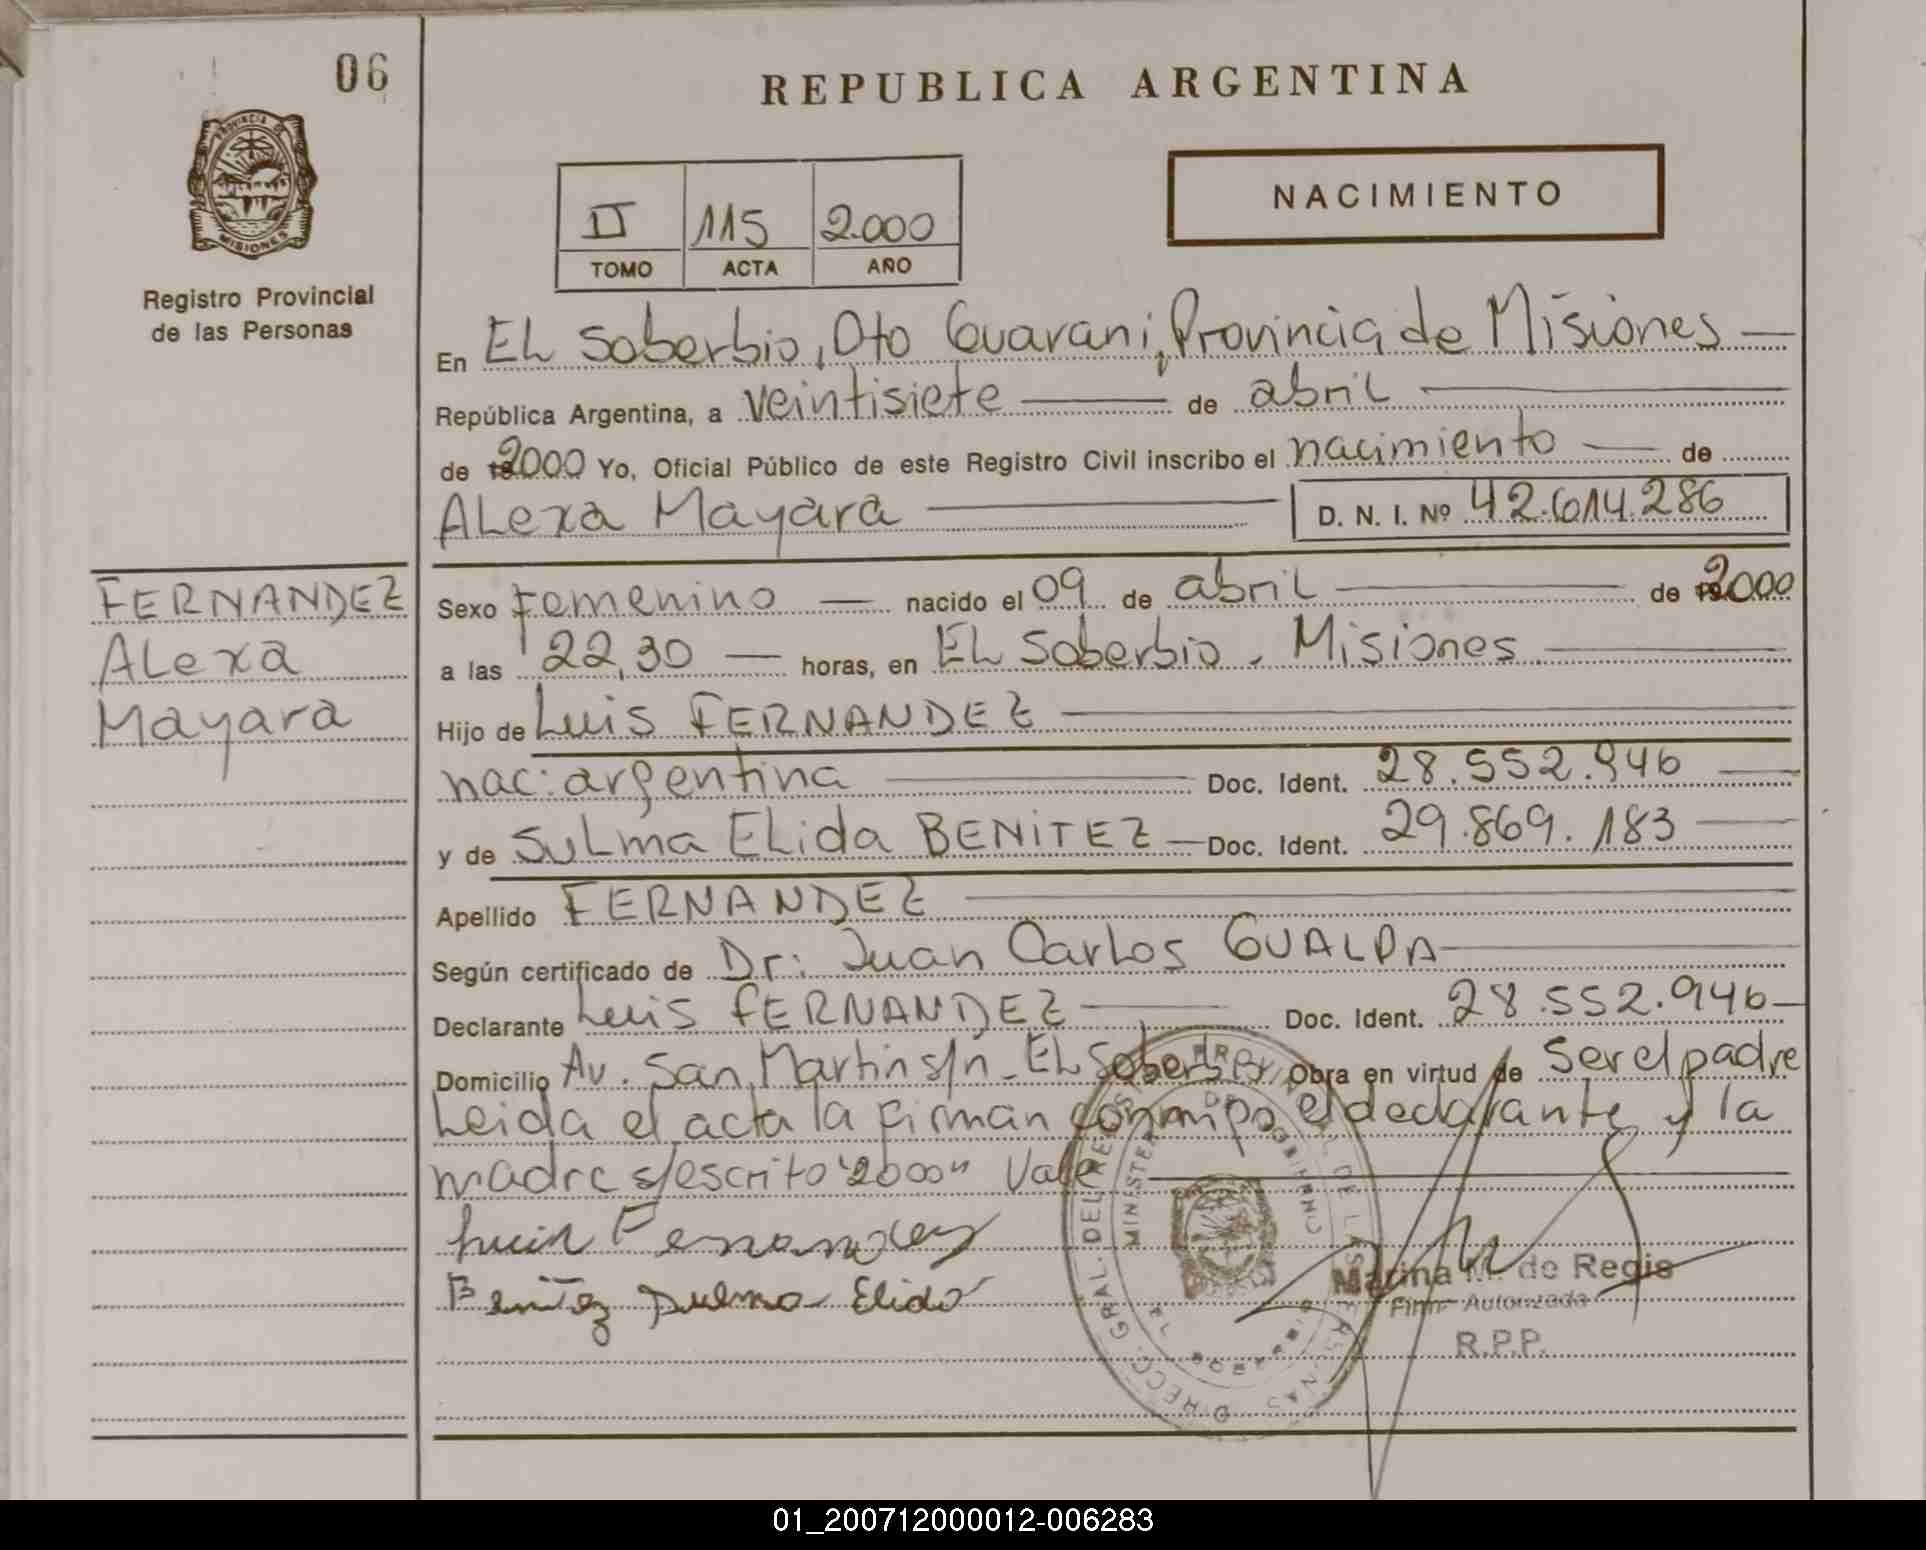 06
REPUBLICA ARGENTINA
PROVINCIA DE
MISIONES
Registro Provincial
de las Personas
II 115 2.000
TOMO ACTA AÑO
NACIMIENTO
En EL Soberbio, Dto Guarani, Provincia de Misiones
República Argentina, a veintisiete de abril
de 2000 Yo, Oficial Público de este Registro Civil inscribo el nacimiento de
ALexa Mayara D. N. I. Nº 42.614.286
FERNANDEZ
ALexa
Mayara
Sexo femenino nacido el 09 de abril de 2000
a las 22,30 horas, en EL Soberbio - Misiones
Hijo de Luis FERNANDEZ
nac: argentina Doc. Ident. 28.552.946
y de SuLma ELida BENITEZ Doc. Ident. 29.869.183
Apellido FERNANDEZ
Según certificado de Dr: Juan Carlos GUALDA
Declarante Luis FERNANDEZ Doc. Ident. 28.552.946
Domicilio Av. San Martin s/n - EL Soberbio Obra en virtud de ser el padre
Leida el acta la firman conmigo el declarante y la
madre s/escrito "2000" Vale
Luis Fernandez
Benitez Sulma Elida
Marina M. de Regis
Firma Autorizada
R.P.P.
01_200712000012-006283